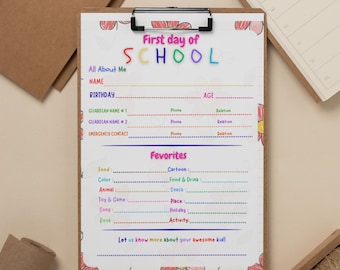 First day of
SCHOOL
All About Me
NAME
BIRTHDAY AGE
GUARDIAN NAME # 1 Phone Relation
GUARDIAN NAME # 2 Phone Relation
EMERGENCY CONTACT Phone Relation
Favorites
Food : Cartoon :
Color : Food & Drink :
Animal Snack :
Toy & Game : Place :
Song : Holiday :
Book : Activity :
Let us know more about your awesome kid!